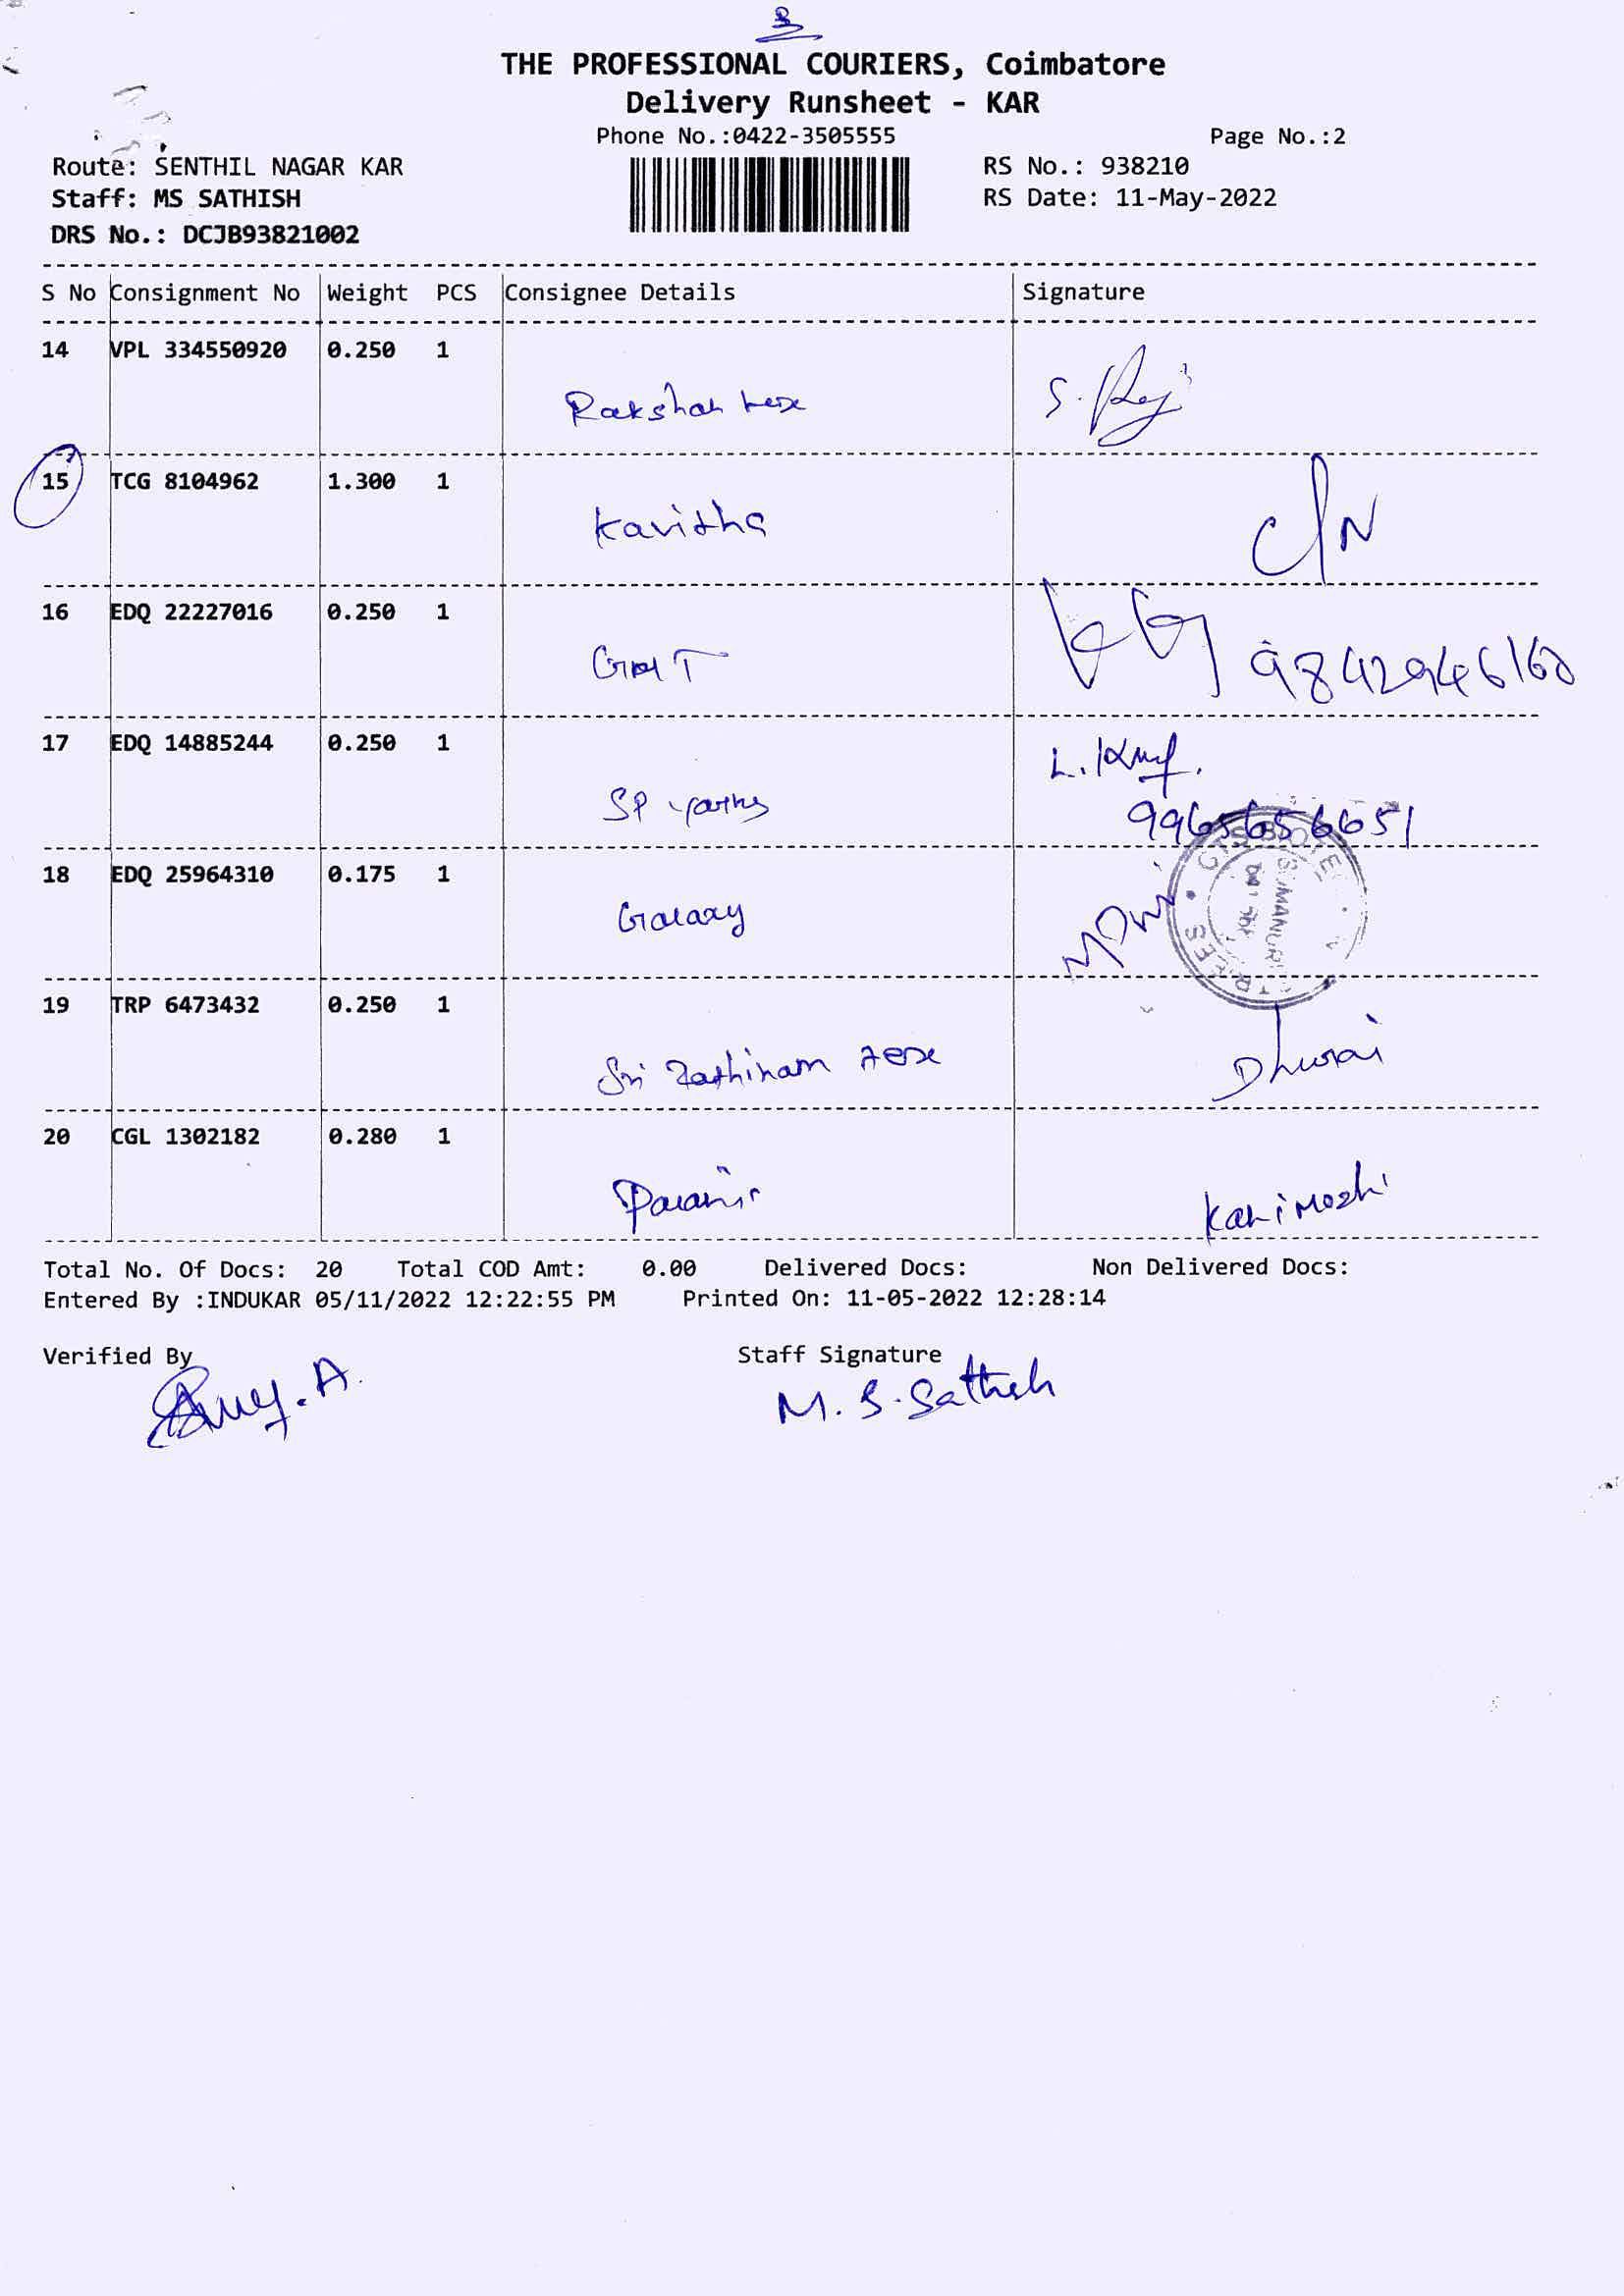 THE PROFESSIONAL COURIERS, Coimbatore
Delivery Runsheet - KAR
Phone No.:0422-3505555 Page No.:2
Route: SENTHIL NAGAR KAR RS No.: 938210
Staff: MS SATHISH RS Date: 11-May-2022
DRS No.: DCJB93821002
S No Consignment No Weight PCS Consignee Details Signature
14 VPL 334550920 0.250 1
Rakshah
15 TCG 8104962 1.300 1
Kavitha
16 EDQ 22227016 0.250 1
17 EDQ 14885244 0.250 1
SP
9965656651
18 EDQ 25964310 0.175 1
Galaxy
19 TRP 6473432 0.250 1
Sri Rathinam Dhurai
20 CGL 1302182 0.280 1
Kanimozhi
Total No. Of Docs: 20 Total COD Amt: 0.00 Delivered Docs: Non Delivered Docs:
Entered By :INDUKAR 05/11/2022 12:22:55 PM Printed On: 11-05-2022 12:28:14
Verified By Staff Signature
M. S. Sathish